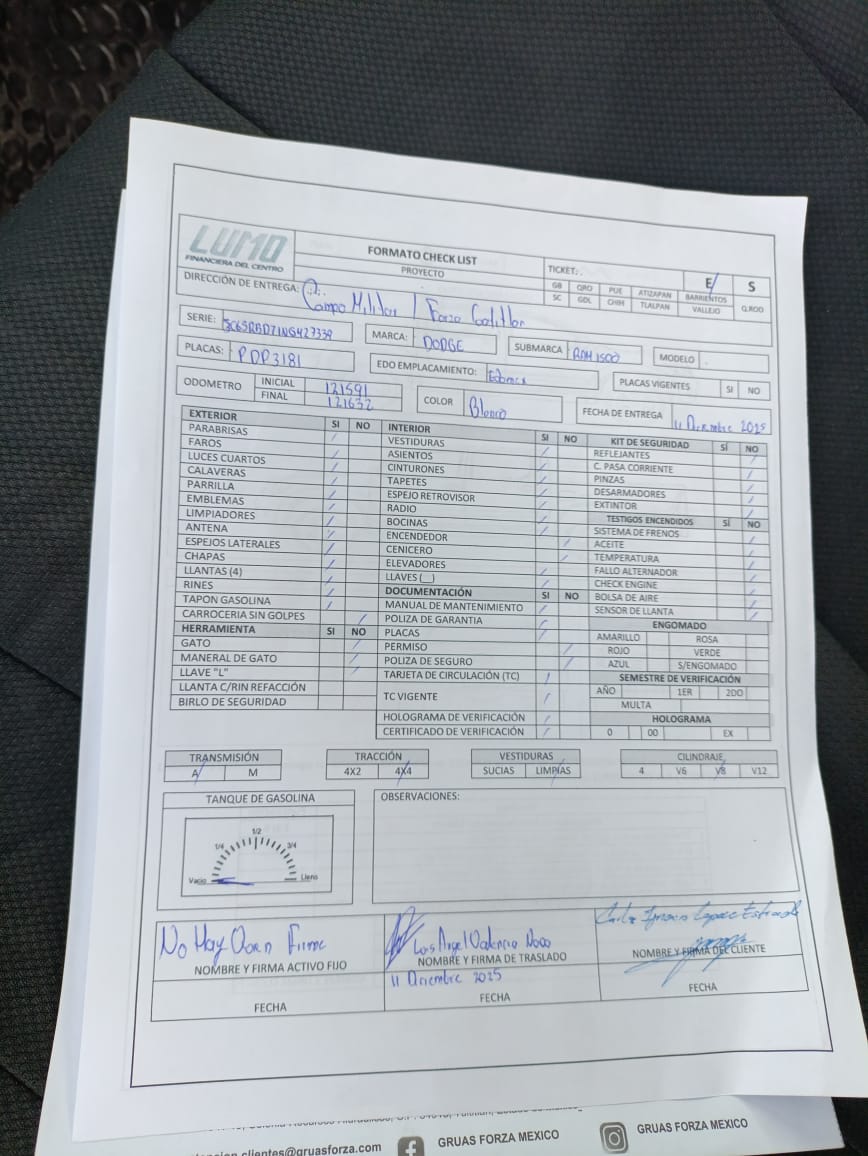 LUMO
FINANCIERA DEL CENTRO
FORMATO CHECK LIST
PROYECTO
TICKET:
E S
GB QRO PUE ATIZAPAN BARRIENTOS
SC GDL CHIH TLALPAN VALLEJO Q.ROO
DIRECCIÓN DE ENTREGA: Campo Militar 1
SERIE:
MARCA: DODGE
SUBMARCA RAM 1500
MODELO
PLACAS: PDP3181
EDO EMPLACAMIENTO: Edomex
PLACAS VIGENTES SI NO
ODOMETRO INICIAL 121591
FINAL 121632
COLOR Blanco
FECHA DE ENTREGA 11 Diciembre 2025
EXTERIOR SI NO
PARABRISAS
FAROS
LUCES CUARTOS
CALAVERAS
PARRILLA
EMBLEMAS
LIMPIADORES
ANTENA
ESPEJOS LATERALES
CHAPAS
LLANTAS (4)
RINES
TAPON GASOLINA
CARROCERIA SIN GOLPES
HERRAMIENTA SI NO
GATO
MANERAL DE GATO
LLAVE "L"
LLANTA C/RIN REFACCIÓN
BIRLO DE SEGURIDAD
INTERIOR SI NO
VESTIDURAS
ASIENTOS
CINTURONES
TAPETES
ESPEJO RETROVISOR
RADIO
BOCINAS
ENCENDEDOR
CENICERO
ELEVADORES
LLAVES (__)
DOCUMENTACIÓN SI NO
MANUAL DE MANTENIMIENTO
POLIZA DE GARANTIA
PLACAS
PERMISO
POLIZA DE SEGURO
TARJETA DE CIRCULACIÓN (TC)
TC VIGENTE
HOLOGRAMA DE VERIFICACIÓN
CERTIFICADO DE VERIFICACIÓN
KIT DE SEGURIDAD SÍ NO
REFLEJANTES
C. PASA CORRIENTE
PINZAS
DESARMADORES
EXTINTOR
TESTIGOS ENCENDIDOS SÍ NO
SISTEMA DE FRENOS
ACEITE
TEMPERATURA
FALLO ALTERNADOR
CHECK ENGINE
BOLSA DE AIRE
SENSOR DE LLANTA
ENGOMADO
AMARILLO ROSA
ROJO VERDE
AZUL S/ENGOMADO
SEMESTRE DE VERIFICACIÓN
AÑO 1ER 2DO
MULTA
HOLOGRAMA
0 00 EX
TRANSMISIÓN
A M
TRACCIÓN
4X2 4X4
VESTIDURAS
SUCIAS LIMPIAS
CILINDRAJE
4 V6 V8 V12
TANQUE DE GASOLINA
Vacio 1/4 1/2 3/4 Lleno
OBSERVACIONES:
No Hay Firme
NOMBRE Y FIRMA ACTIVO FIJO
FECHA
Luis Angel Valencia
NOMBRE Y FIRMA DE TRASLADO
11 Diciembre 2025
FECHA
Ignacio Lopez Estrada
NOMBRE Y FIRMA DEL CLIENTE
FECHA
clientes@gruasforza.com
GRUAS FORZA MEXICO
GRUAS FORZA MEXICO